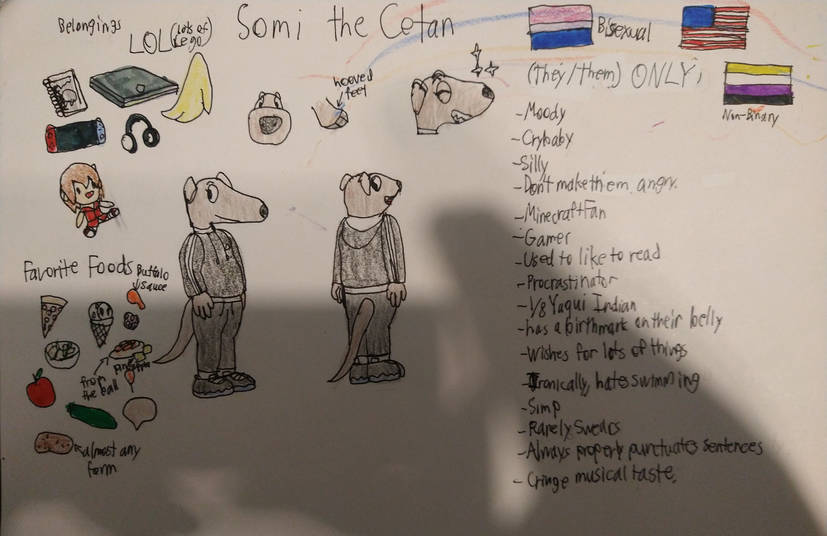 Somi the Cetan
Belongings
LOL (Lots of
Lego)
hooved
feet
Bisexual
(They/Them) ONLY!
Non-Binary
-Moody
-Crybaby
-Silly
-Don't make them angry.
-Minecraft Fan
-Gamer
-Used to like to read
-Procrastinator
-1/8 Yaqui Indian
-has a birthmark on their belly
-Wishes for lots of things
-Ironically, hates swimming
-Simp
-Rarely Swears
-Always properly punctuates sentences
-Cringe musical taste.
Favorite Foods
Buffalo
sauce
from
the
almost any
form